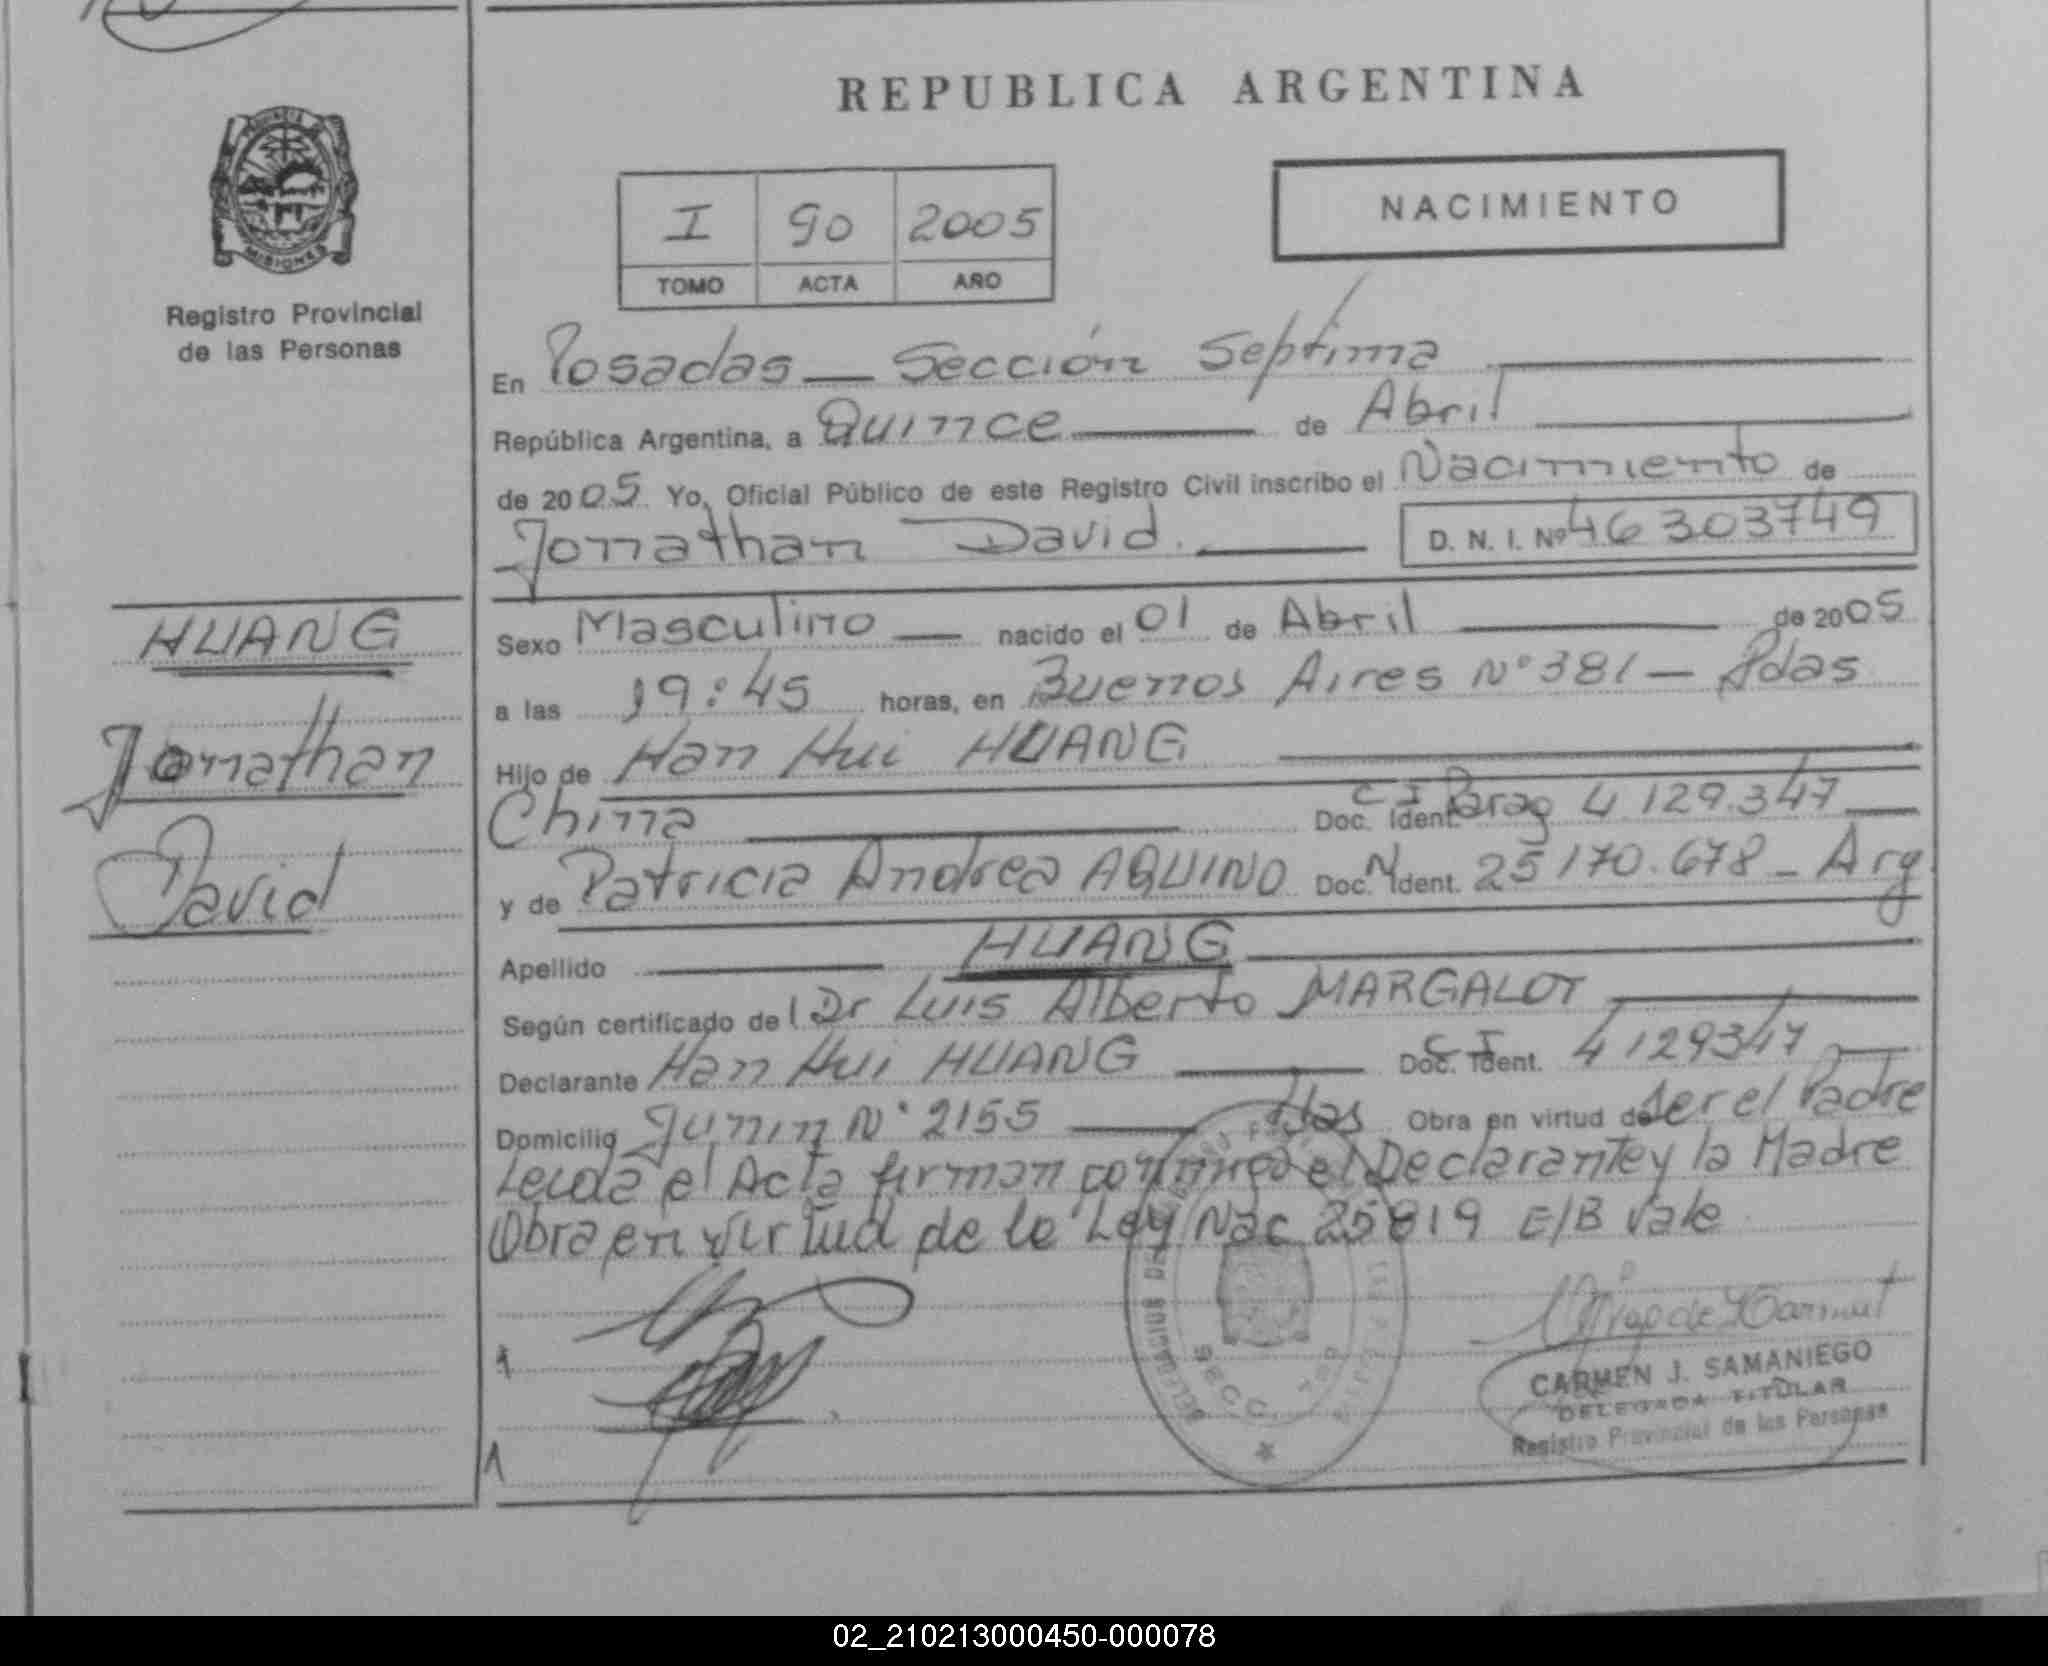 REPUBLICA ARGENTINA
NACIMIENTO
I 90 2005
TOMO ACTA AÑO
MISIONES
Registro Provincial
de las Personas
En Posadas — Sección Septima
República Argentina, a Quince de Abril
de 2005 Yo, Oficial Público de este Registro Civil inscribo el Nacimiento de
Jonathan David. D. N. I. Nº 46 303749
HUANG
Jonathan
David
Sexo Masculino — nacido el 01 de Abril de 2005
a las 19:45 horas, en Buenos Aires Nº 381 — Pdas
Hijo de Han Hui HUANG
China Doc. Ident. C I Parag 4.129.347
y de Patricia Andrea AQUINO Doc. Ident. 25170.678 - Arg
Apellido HUANG
Según certificado del Dr Luis Alberto MARGALOT
Declarante Han Hui HUANG Doc. Ident. C I 4129347
Domicilio Junin Nº 2155 Obra en virtud de ser el Padre
Leida el Acta firman conmigo el Declarante y la Madre
Obra en virtud de la Ley Nac 25819 E/B Vale
SECC.
CARMEN J. SAMANIEGO
DELEGADA TITULAR
Registro Provincial de las Personas
02_210213000450-000078